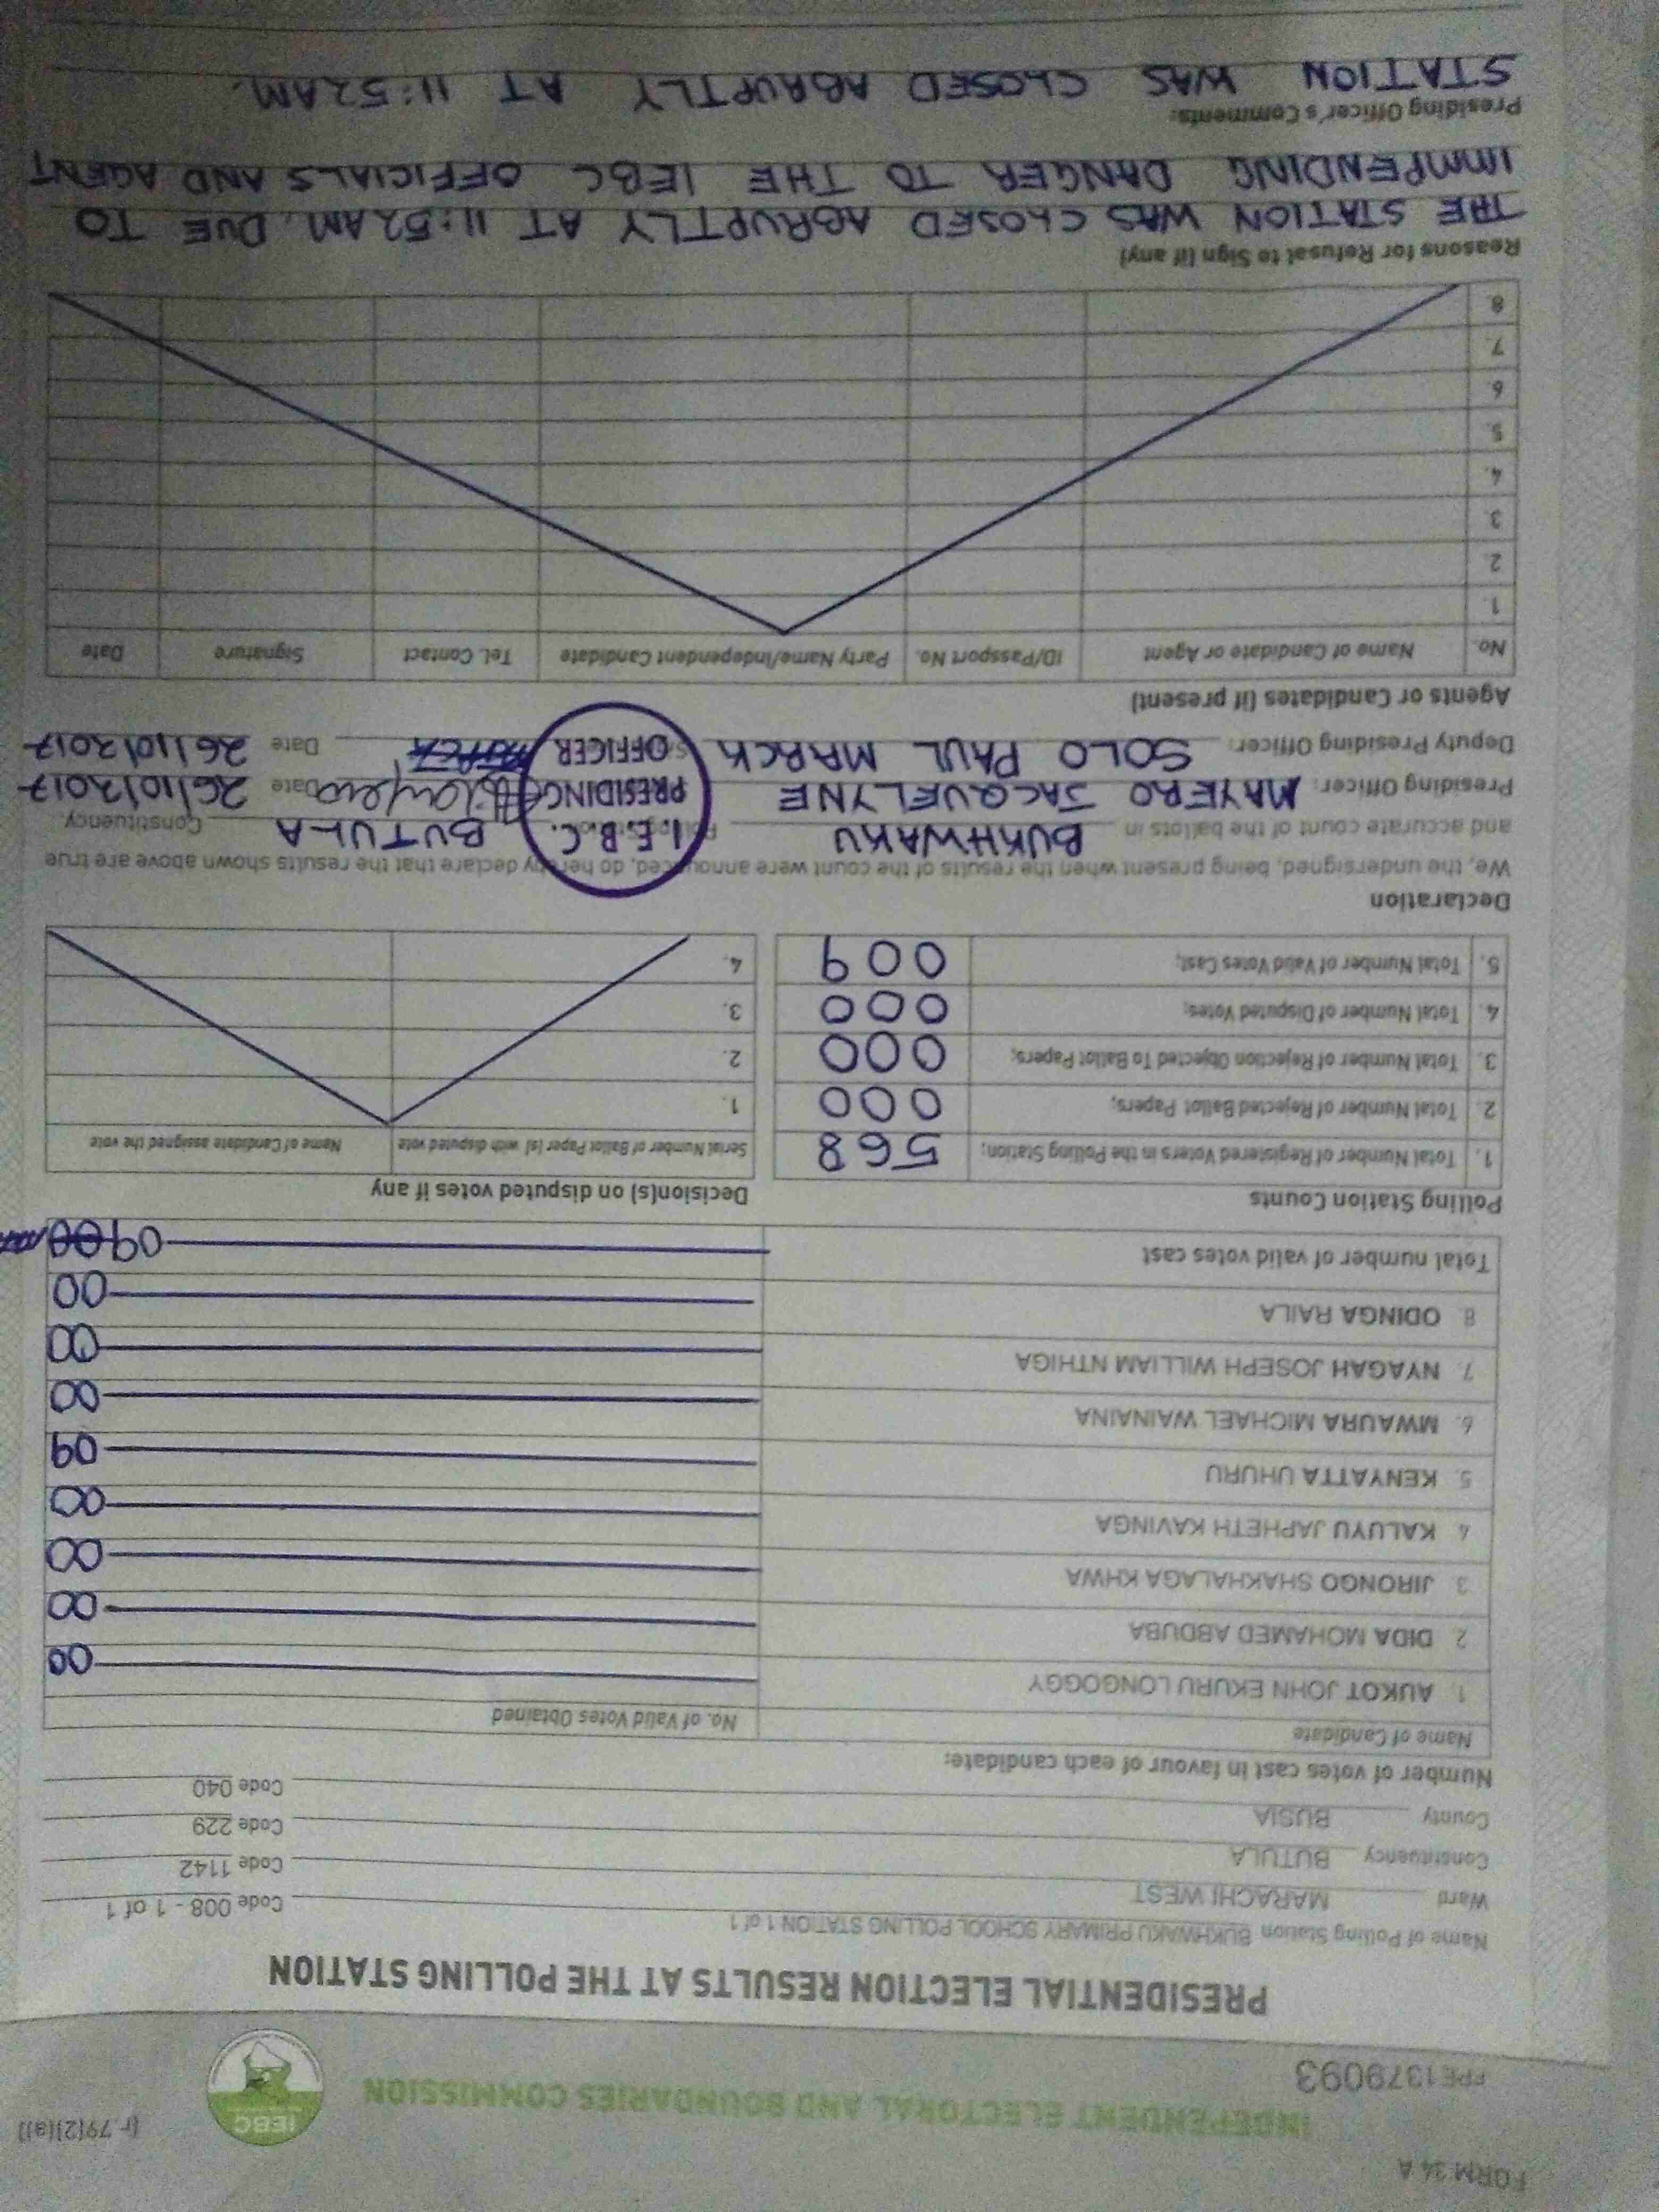 FORM 34 A
(r. 79(2)(a))
INDEPENDENT ELECTORAL AND BOUNDARIES COMMISSION
IEBC
FPE1379093
PRESIDENTIAL ELECTION RESULTS AT THE POLLING STATION
Name of Polling Station BUKHWAKU PRIMARY SCHOOL POLLING STATION 1 of 1 Code 008 - 1 of 1
Ward MARACHI WEST Code 1142
Constituency BUTULA Code 229
County BUSIA Code 040
Number of votes cast in favour of each candidate:
Name of Candidate No. of Valid Votes Obtained
1. AUKOT JOHN EKURU LONGOGGY 00
2 DIDA MOHAMED ABDUBA 00
3 JIRONGO SHAKHALAGA KHWA 00
4 KALUYU JAPHETH KAVINGA 00
5 KENYATTA UHURU 09
6. MWAURA MICHAEL WAINAINA 00
7 NYAGAH JOSEPH WILLIAM NTHIGA 00
8 ODINGA RAILA 00
Total number of valid votes cast 09
Polling Station Counts
1. Total Number of Registered Voters in the Polling Station; 568
2. Total Number of Rejected Ballot Papers; 000
3. Total Number of Rejection Objected To Ballot Papers; 000
4. Total Number of Disputed Votes; 000
5. Total Number of Valid Votes Cast; 009
Decision(s) on disputed votes if any
Serial Number of Ballot Paper (s) with disputed vote Name of Candidate assigned the vote
1.
2.
3.
4.
Declaration
We, the undersigned, being present when the results of the count were announced, do hereby declare that the results shown above are true
and accurate count of the ballots in BUKHWAKU BUTULA Constituency.
Presiding Officer: MAYERO JACQUELYNE Date 26/10/2017
Deputy Presiding Officer: SOLO PAUL MARCK Date 26/10/2017
I.E.B.C.
PRESIDING
OFFICER
Agents or Candidates (if present)
No. Name of Candidate or Agent ID/Passport No. Party Name/Independent Candidate Tel. Contact Signature Date
1.
2.
3
4.
5.
6.
7.
8
Reasons for Refusal to Sign (if any)
THE STATION WAS CLOSED ABRUPTLY AT 11:52AM. DUE TO
IMMPENDING DANGER TO THE IEBC OFFICIALS AND AGENT
Presiding Officer's Comments:
STATION WAS CLOSED ABRUPTLY AT 11:52AM.